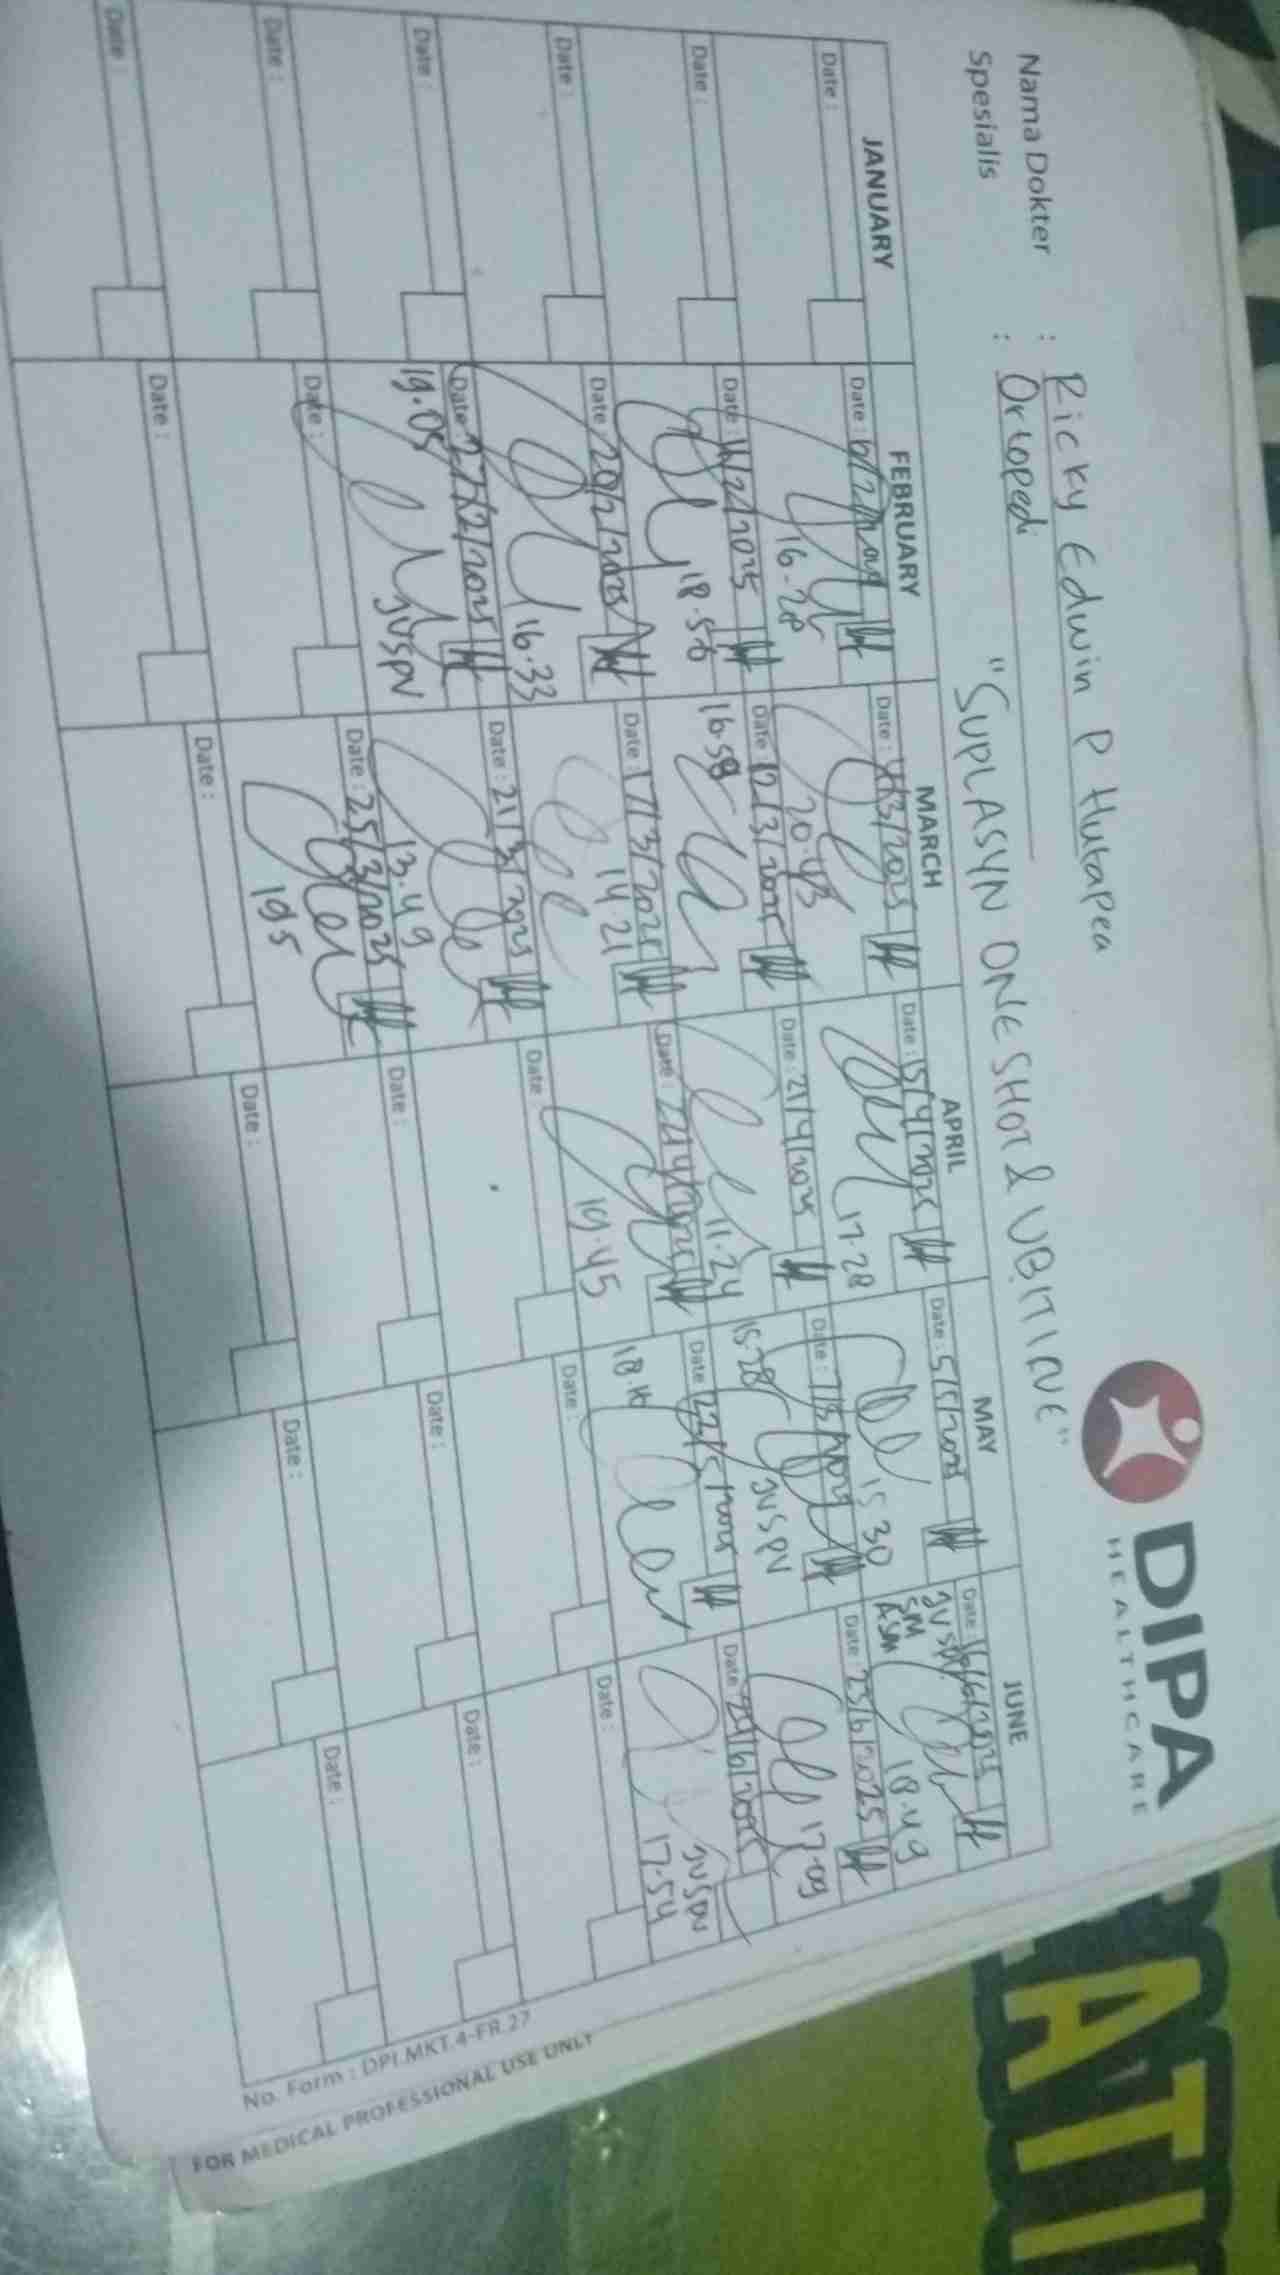 DIPA
HEALTHCARE
Nama Dokter : Ricky Edwin P Hutapea
Spesialis : Ortopedi
"SUPLASYN ONE SHOT &
JANUARY FEBRUARY MARCH APRIL MAY JUNE
Date : Date : Date : Date : 15/4/2025 Date : 5/5/2025 Date : 16/6/2025
16-28 20.43 17.28 15 30 JVSPV SM ASM 18.49
Date : Date : Date : 12/3/2025 Date : 21/4/2025 Date : Date : 23/6/2025
18.56 16.58 11.24 15.28 JVSPV 17.09
Date : Date : 20/2/2025 Date : 17/3/2025 Date : 22/4/2025 Date : 22/5/2025 Date : 24/6/2025
16.33 14.21 19.45 18.16 JVSPV 17.54
Date : Date : 27/2/2025 Date : 21/3/2025 Date Date : Date :
19.05 JVSPV 13.49
Date : Date : Date : 25/3/2025 Date : Date : Date :
19 5
Date : Date : Date : Date : Date : Date :
No. Form : DPI.MKT.4-FR.27
FOR MEDICAL PROFESSIONAL USE ONLY
ATI